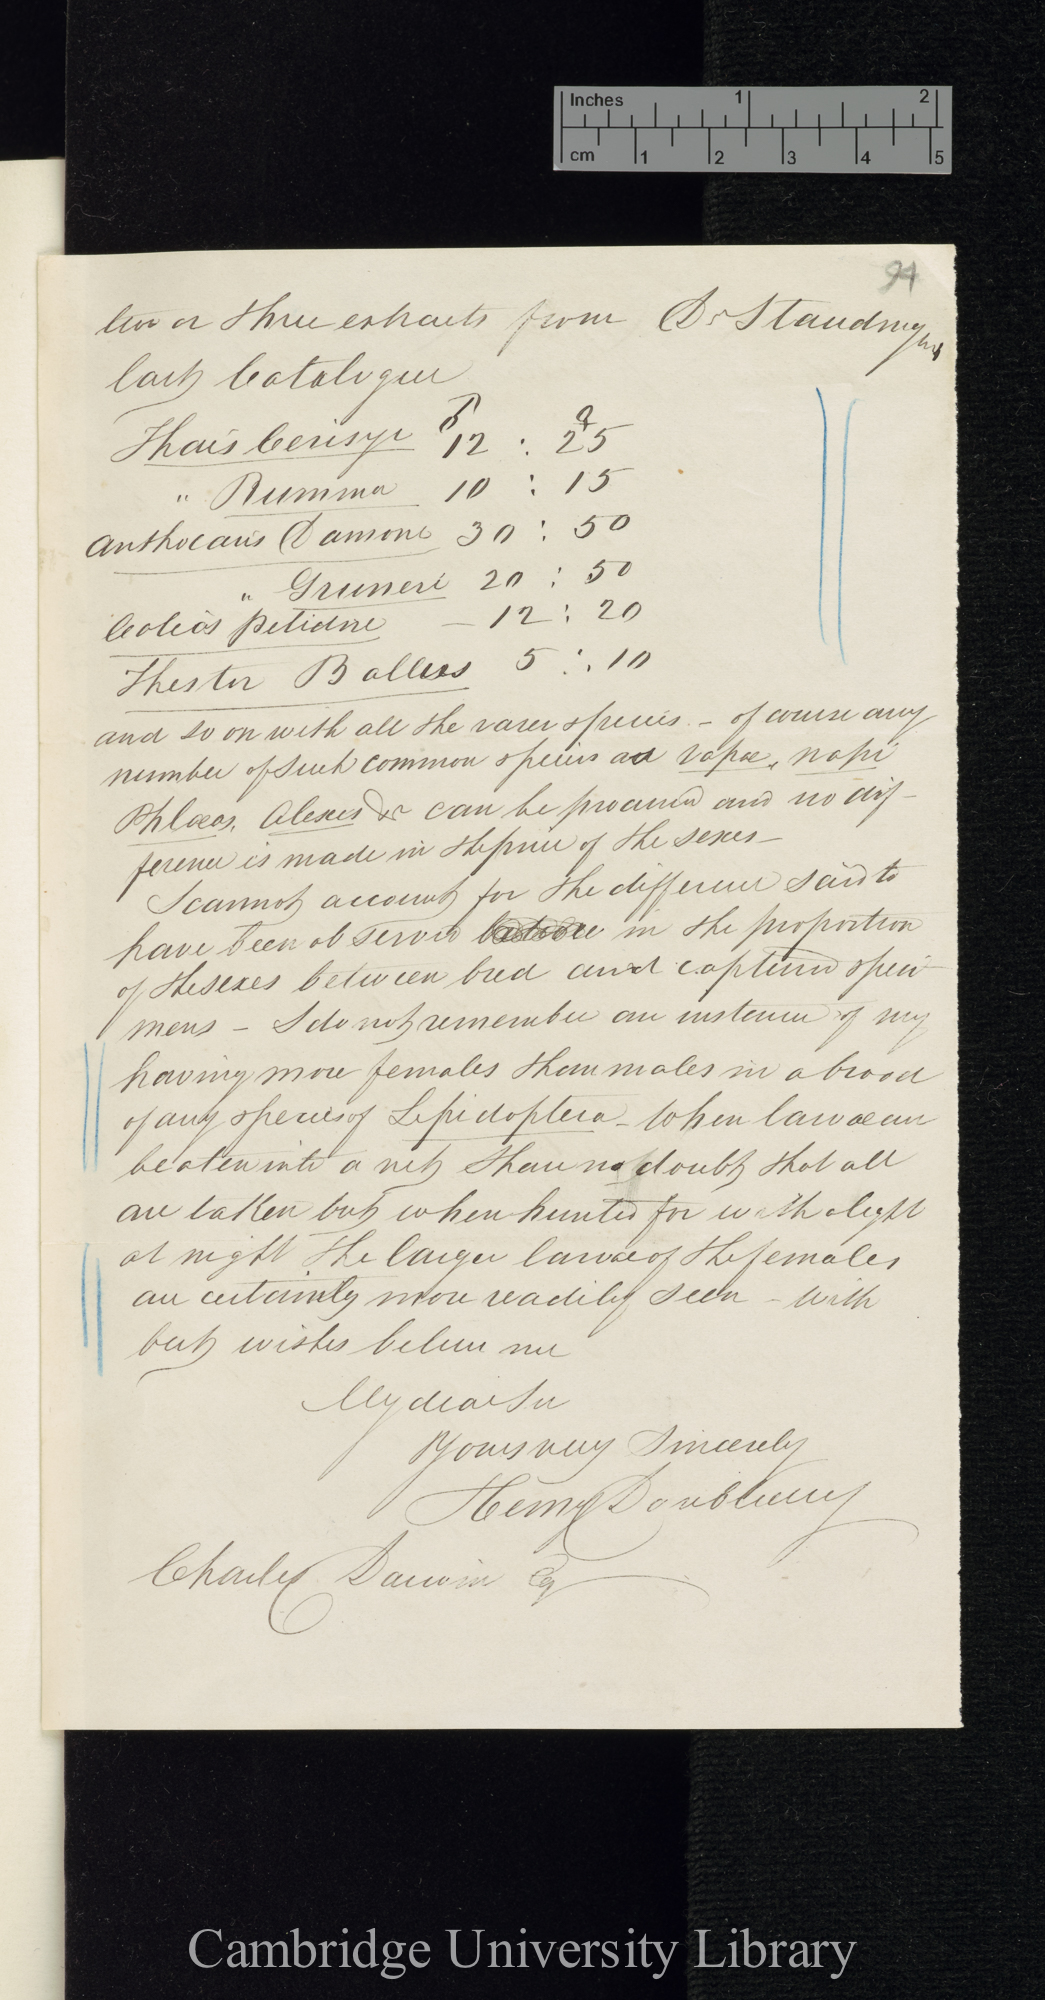 Inches 1 2
cm 1 2 3 4 5
94
two or three extracts from Dr Staudingers
last Catalogue
♂ ♀
Thais Cerisyi 12 : 25
" Rumina 10 : 15
Anthocaris Damone 30 : 50
" Gruneri 20 : 50
Colias Pelidne — 12 : 20
Thestor Ballus 5 : 10
and so on with all the rarer species. – of course any
number of such common species as rapæ, napi
Phlæas, Alexis &c can be procured and no dif-
ference is made in the price of the sexes –
I cannot account for the difference said to
have been observed in the proportion
of the sexes between bred and captured speci-
mens – I do not remember an instance of my
having more females than males in a brood
of any species of Lepidoptera – When larvæ are
beaten into a net I have no doubt that all
are taken but when hunted for with a light
at night the larger larvæ of the females
are certainly more readily seen – With
best wishes believe me
My dear Sir
Yours very sincerely
Henry Doubleday
Charles Darwin Esq
Cambridge University Library